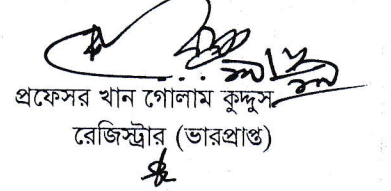 প্রফেসর খান গোলাম কুদ্দুস
রেজিস্ট্রার (ভারপ্রাপ্ত)